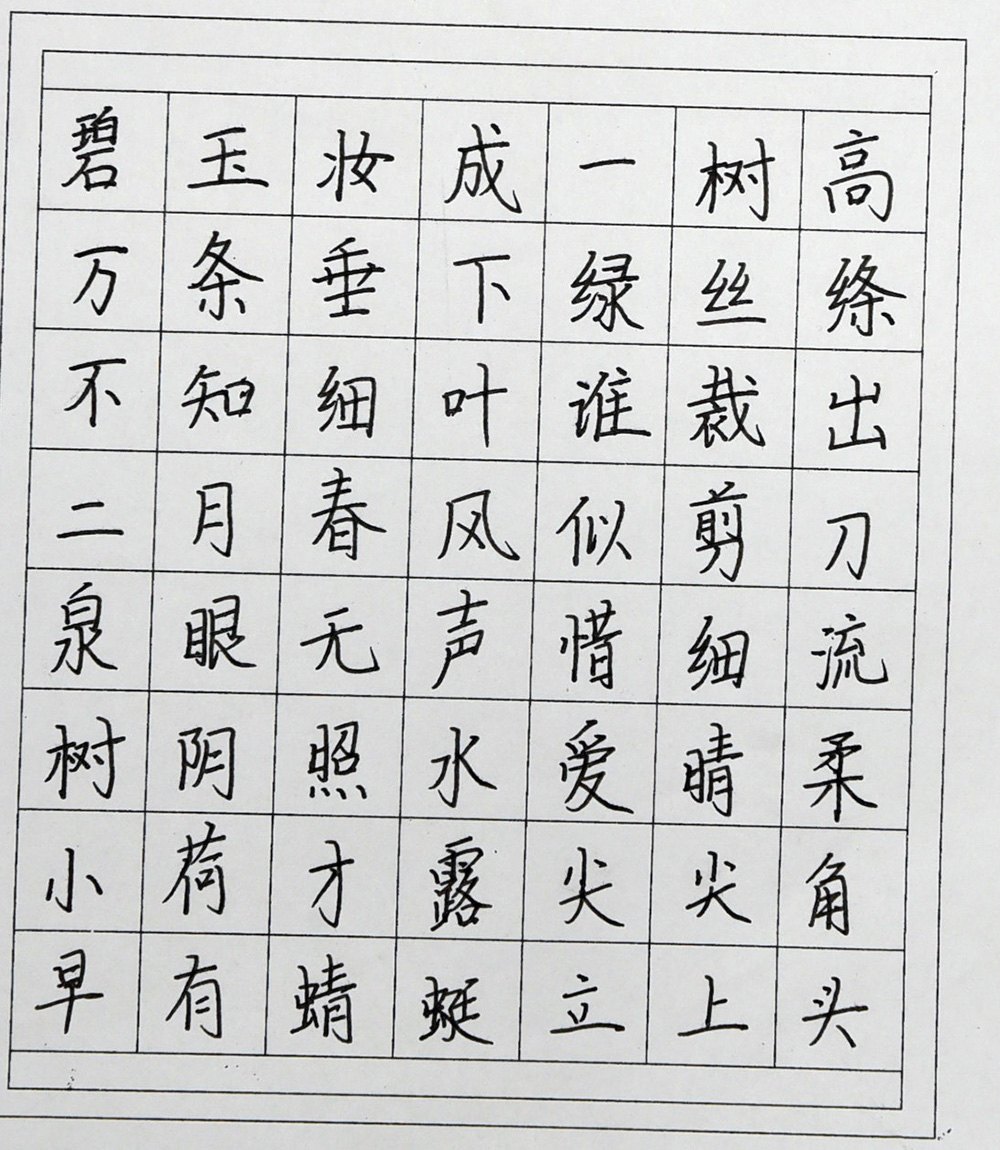 碧玉妆成一树高
万条垂下绿丝绦
不知细叶谁裁出
二月春风似剪刀
泉眼无声惜细流
树阴照水爱晴柔
小荷才露尖尖角
早有蜻蜓立上头